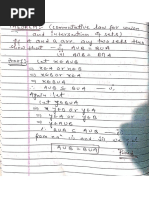 THEOREM: (commutative law for union
and intersection of sets)
If A and B are any two sets then
show that - i) AUB = BUA
ii) A∩B = B∩A
Proof:)
Let x∈AUB
⇒ x∈A or x∈B
⇒ x∈B or x∈A
⇒ x∈BUA
∴ AUB ⊆ BUA — i
Again let
y∈BUA
⇒ y∈B or y∈A
⇒ y∈A or y∈B
⇒ y∈AUB
∴ BUA ⊆ AUB — ii
AUB = BUA